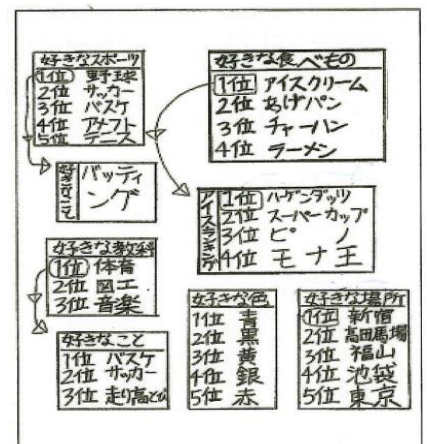 好きなスポーツ
1位 野球
2位 サッカー
3位 バスケ
4位 アメフト
5位 テニス
好きな食べもの
1位 アイスクリーム
2位 あげパン
3位 チャーハン
4位 ラーメン
好きなこと
バッティ
ング
アイスランキング
1位 ハーゲンダッツ
2位 スーパーカップ
3位 ピノ
4位 モナ王
好きな教科
1位 体育
2位 図工
3位 音楽
好きなこと
1位 バスケ
2位 サッカー
3位 走り高とび
好きな色
1位 青
2位 黒
3位 黄
4位 銀
5位 赤
好きな場所
1位 新宿
2位 高田馬場
3位 福山
4位 池袋
5位 東京